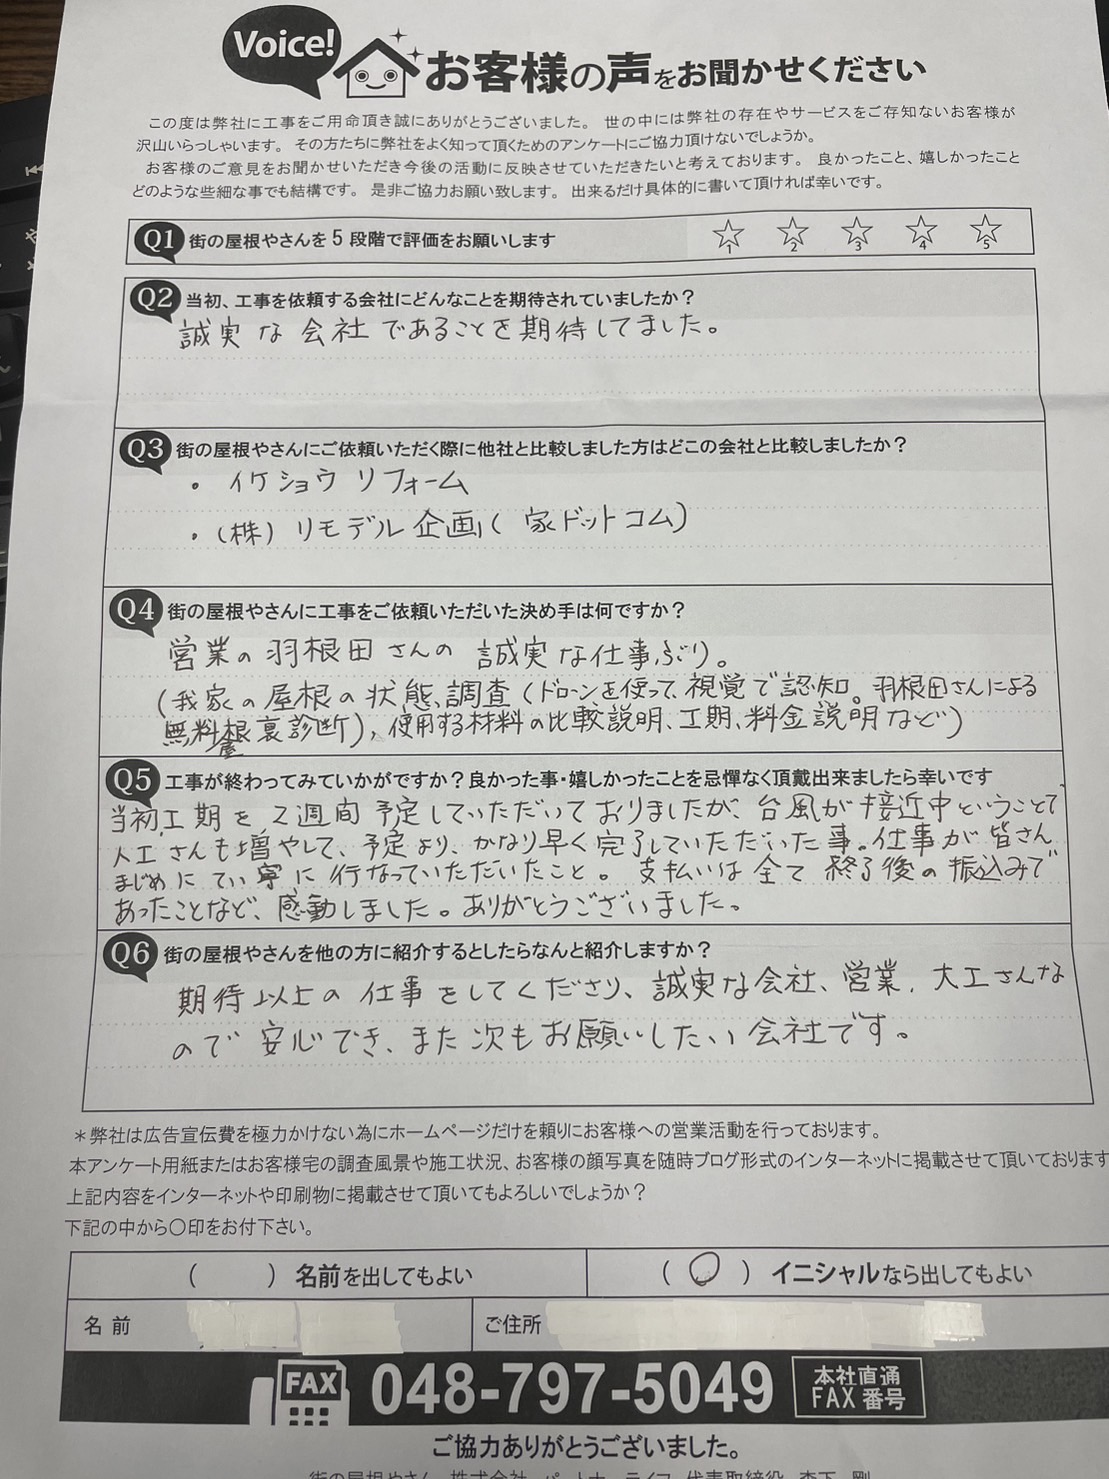 Voice!
お客様の声をお聞かせください
この度は弊社に工事をご用命頂き誠にありがとうございました。 世の中には弊社の存在やサービスをご存知ないお客様が
沢山いらっしゃいます。 その方たちに弊社をよく知って頂くためのアンケートにご協力頂けないでしょうか。
お客様のご意見をお聞かせいただき今後の活動に反映させていただきたいと考えております。 良かったこと、嬉しかったこと
どのような些細な事でも結構です。 是非ご協力お願い致します。 出来るだけ具体的に書いて頂ければ幸いです。
Q1 街の屋根やさんを 5 段階で評価をお願いします ☆1 ☆2 ☆3 ☆4 ☆5
Q2 当初、工事を依頼する会社にどんなことを期待されていましたか?
誠実な会社であることを期待してました。
Q3 街の屋根やさんにご依頼いただく際に他社と比較しました方はどこの会社と比較しましたか?
・イケショウリフォーム
・(株)リモデル企画(家ドットコム)
Q4 街の屋根やさんに工事をご依頼いただいた決め手は何ですか?
営業の羽根田さんの誠実な仕事ぶり。
(我家の屋根の状態、調査(ドローンを使って、視覚で認知。羽根田さんによる
無料屋根裏診断)、使用する材料の比較説明、工期、料金説明など)
Q5 工事が終わってみていかがですか?良かった事・嬉しかったことを忌憚なく頂戴出来ましたら幸いです
当初、工期を2週間予定していただいておりましたが、台風が接近中ということで
人工さんも増やして、予定より、かなり早く完了していただいた事。仕事が皆さん
まじめにてい寧に行なっていただいたこと。支払いは全て終了後の振込みで
あったことなど、感動しました。ありがとうございました。
Q6 街の屋根やさんを他の方に紹介するとしたらなんと紹介しますか?
期待以上の仕事をしてくださり、誠実な会社、営業、大工さんな
ので安心でき、また次もお願いしたい会社です。
*弊社は広告宣伝費を極力かけない為にホームページだけを頼りにお客様への営業活動を行っております。
本アンケート用紙またはお客様宅の調査風景や施工状況、お客様の顔写真を随時ブログ形式のインターネットに掲載させて頂いております
上記内容をインターネットや印刷物に掲載させて頂いてもよろしいでしょうか?
下記の中から〇印をお付下さい。
( ) 名前を出してもよい (〇) イニシャルなら出してもよい
名前 ご住所
FAX 048-797-5049 本社直通 FAX 番号
ご協力ありがとうございました。
街の屋根やさん 株式会社 パートナーライフ 代表取締役 森下 剛